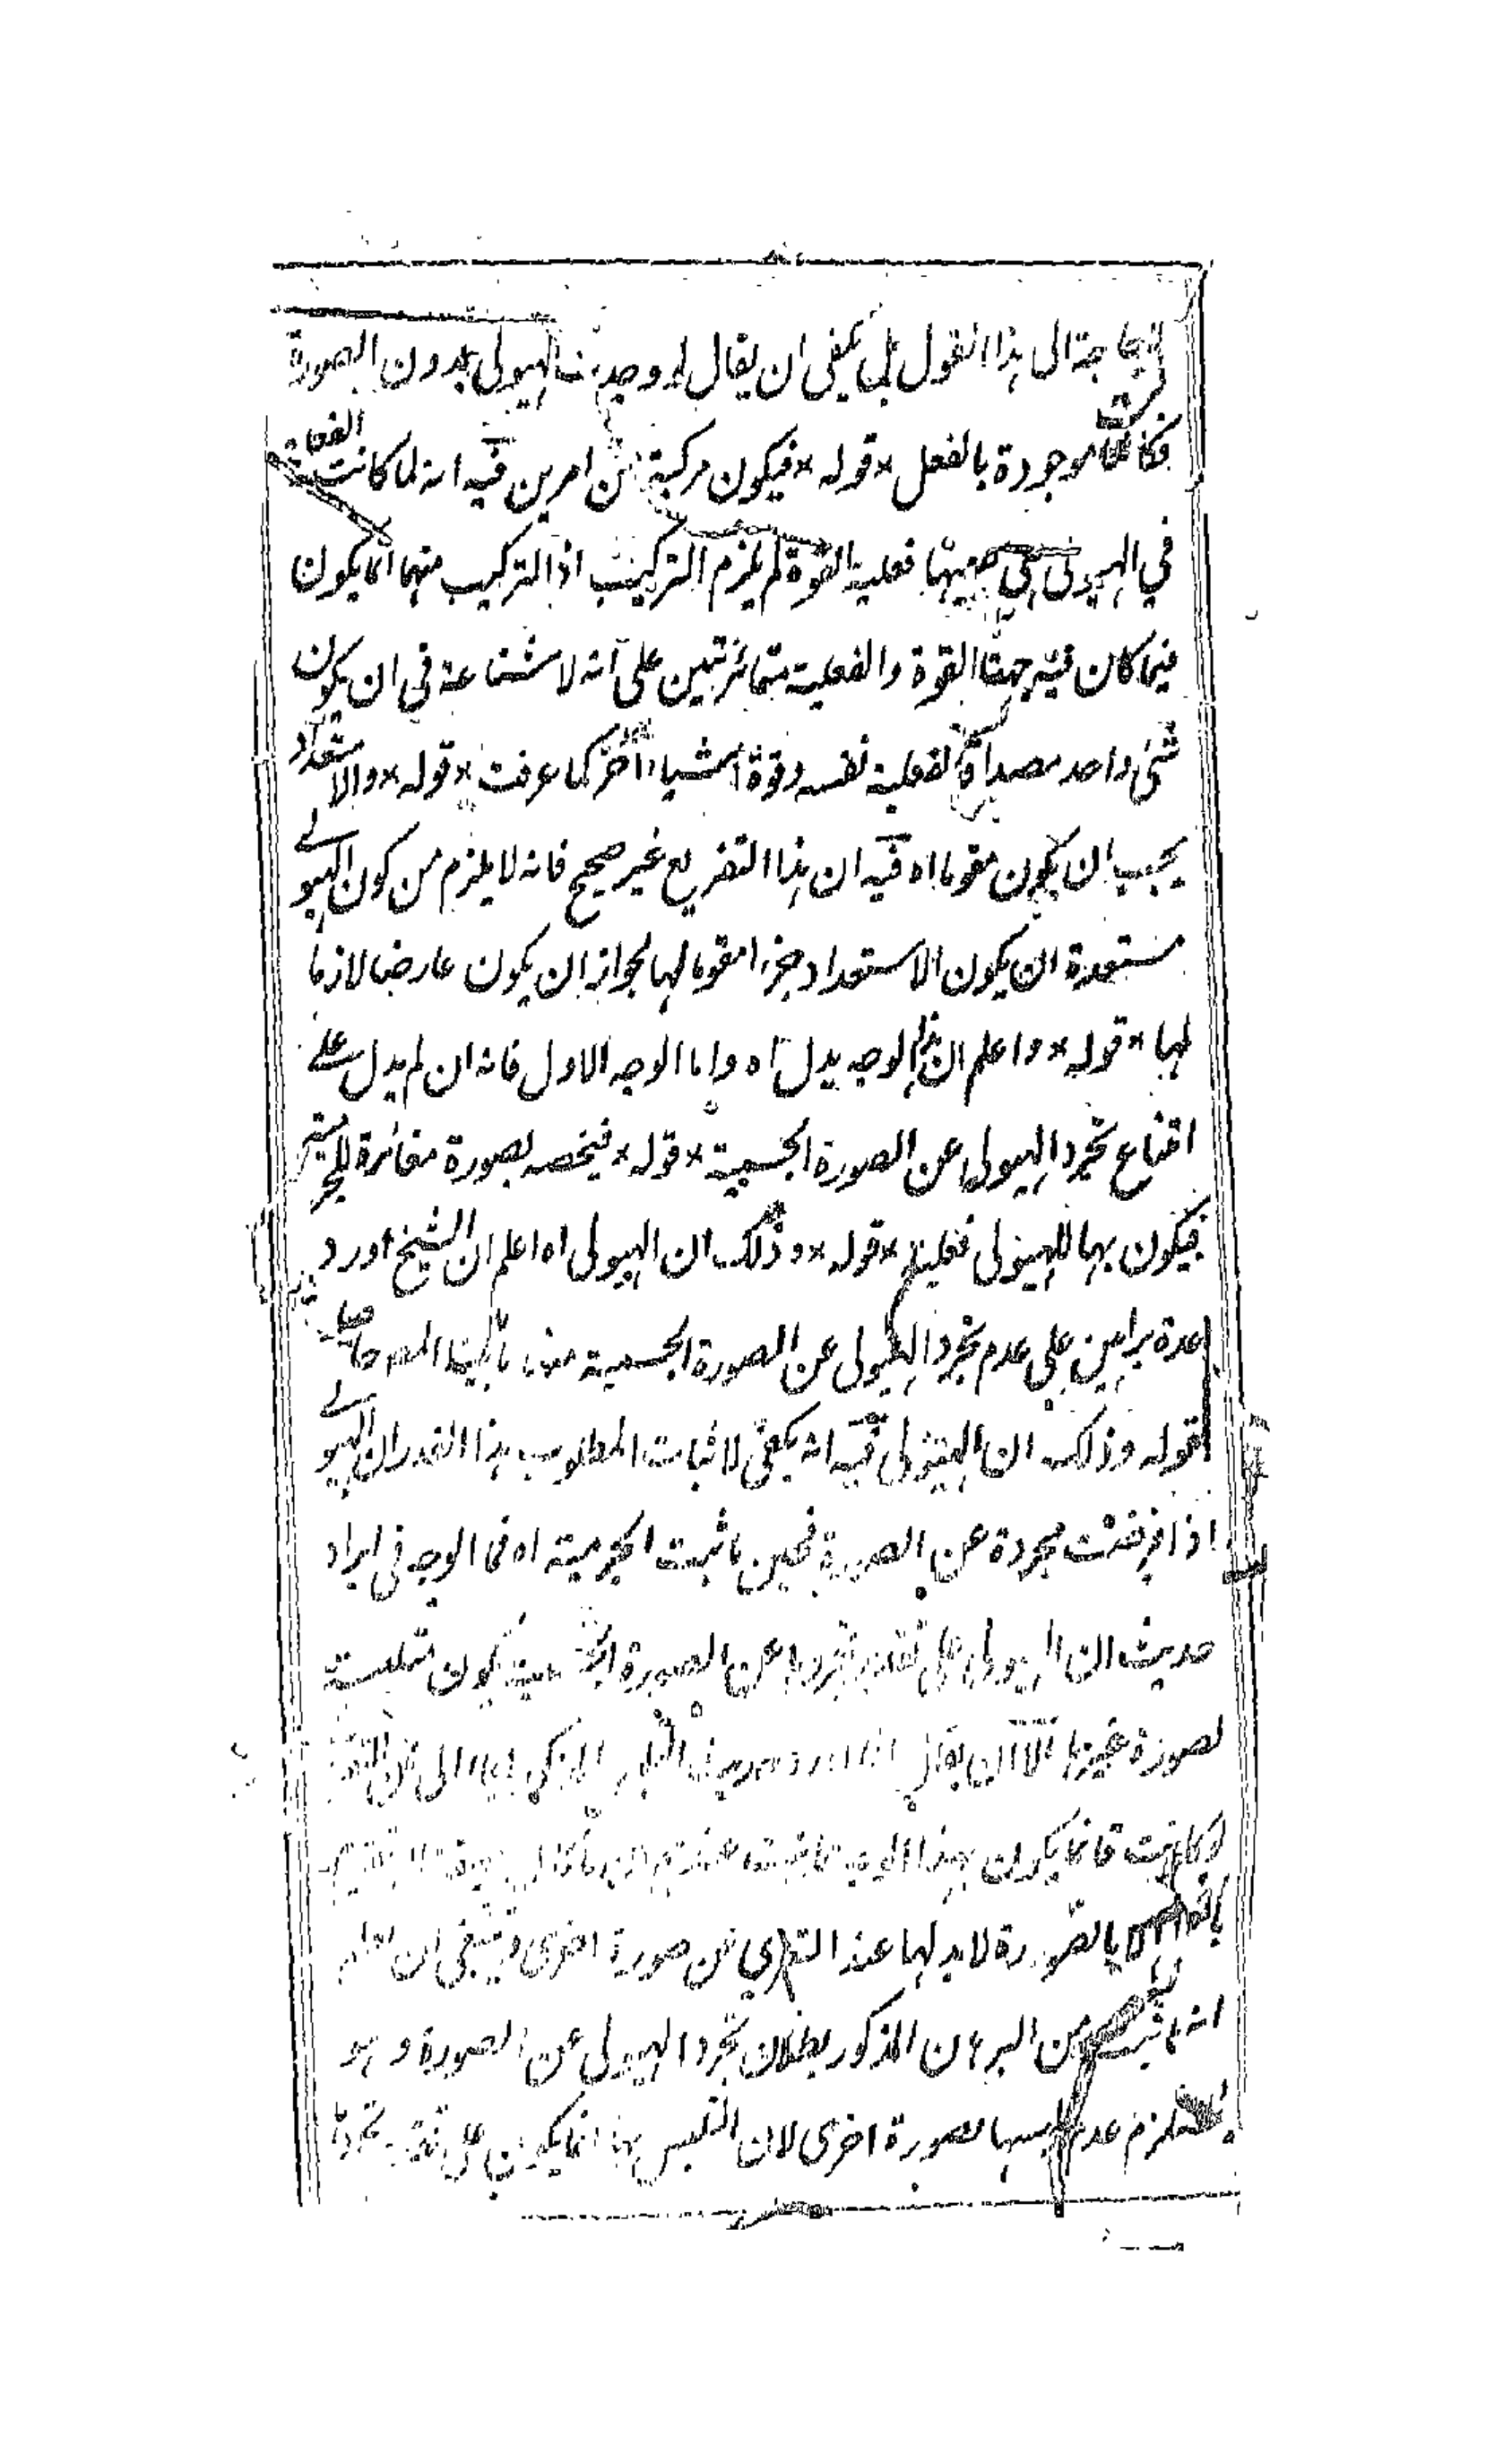 لا حاجة الى هذا القول بل يكفى ان يقال لو وجدت الهيولى بدون الصورة
فكانت موجودة بالفعل * قوله * فيكون مركبة من امرين فيه انه لما كانت الفعلية
في الهيولى هي بعينها فعلية القوة لم يلزم التركيب اذ التركيب منهما انما يكون
فيما كان فيه جهتا القوة والفعلية متمائزتين على انه لا شناعة فى ان يكون
شئ واحد مصداقا لفعلية نفسه وقوة اشياء اخر كما عرفت * قوله * والاستعداد
يجب ان يكون مقوما اه فيه ان هذا التفريع غير صحيح فانه لا يلزم من كون الهيولے
مستعدة ان يكون الاستعداد جزءا مقوما لها لجواز ان يكون عارضا لازما
لها * قوله * واعلم ان هذا الوجه يدل اه واما الوجه الاول فانه ان لم يدل علے
امتناع تجرد الهيولى عن الصورة الجسمية * قوله * فيخصه بصورة مغائرة للجسمية
فيكون بها للهيولى فعلية * قوله * وذلك ان الهيولى اه اعلم ان الشيخ اورد
عدة براهين على عدم تجرد الهيولى عن الصورة الجسمية منها ما بينه المص حاصله
قوله وذلك ان الهيولى فيه انه يكفى لاثبات المطلوب هذا القدر ان الهيولے
اذا فرضت مجردة عن الصورة فحين ما ثبت الجرمية اه فما الوجه فى ايراد
حديث ان الهيولى على تقدير تجردها عن الصورة الجسمية يكون متلبسة
لصورة غيرها الا ان يقال
وكانت فانما يكون بهذا
بالصورة لا بد لها عند التعري عن صورة اخرى وينبغى ان يعلم
انه من البرهان المذكور بطلان تجرد الهيولى عن الصورة وهو
يستلزم عدم تلبسها بصورة اخرى لان التلبس بها انما يكون على تقدير تجردها